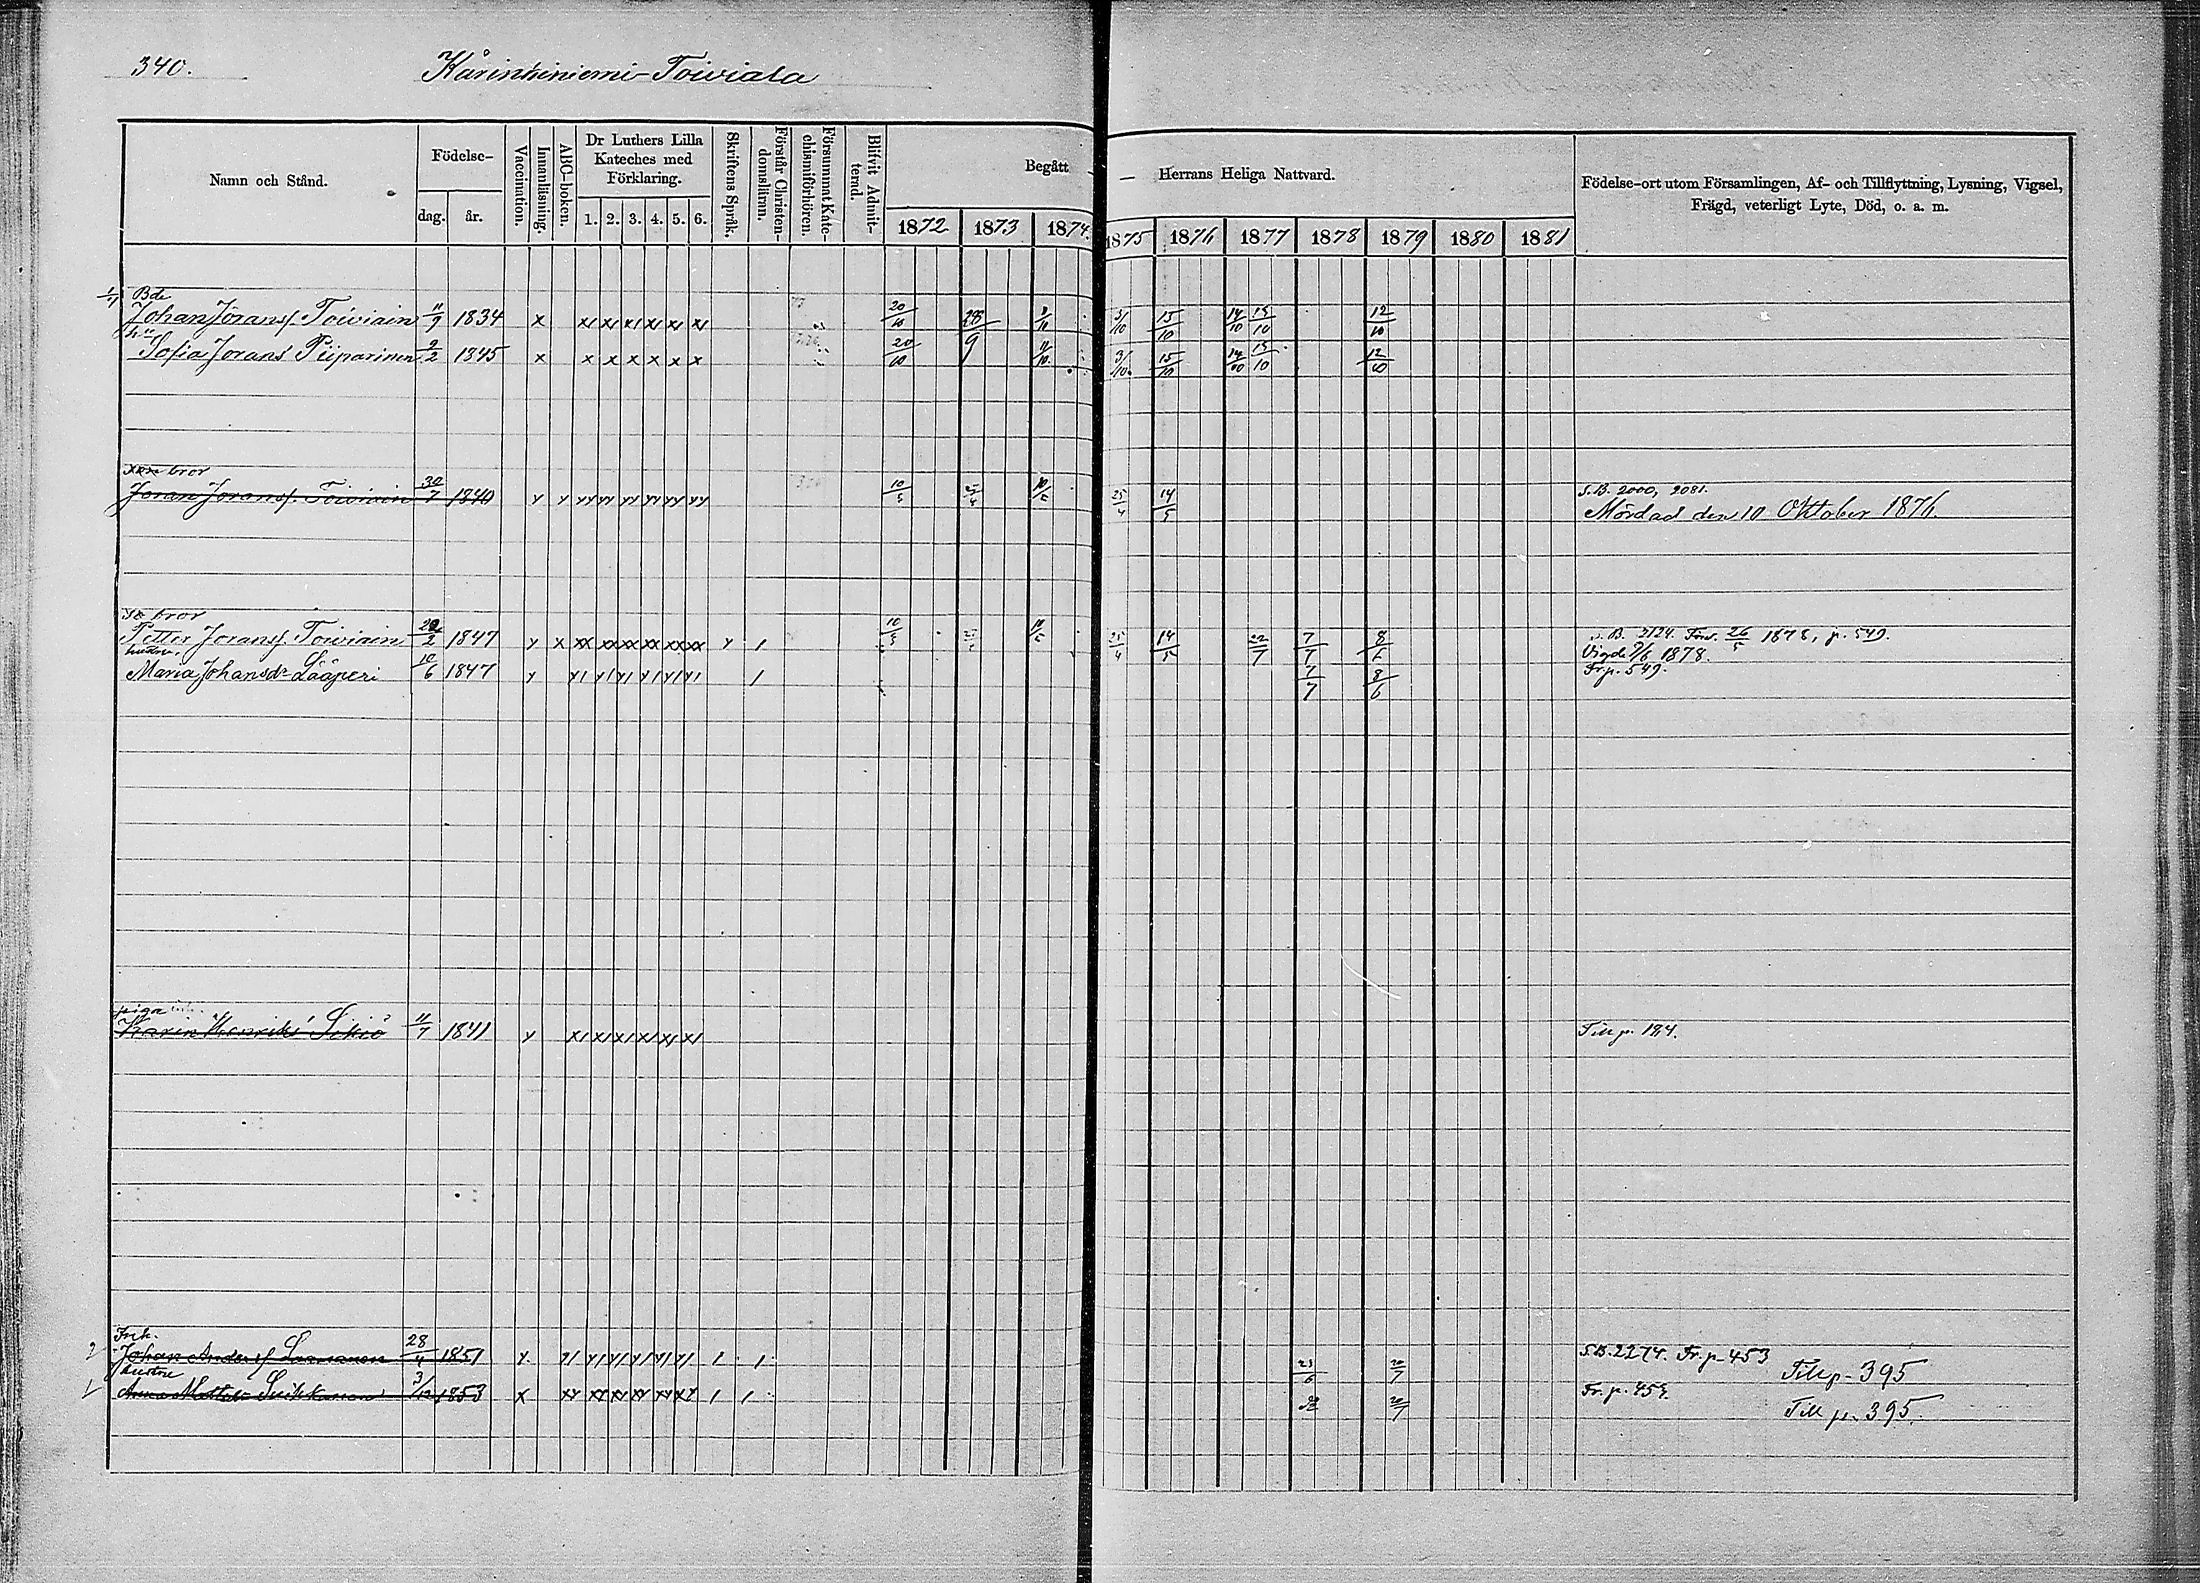 340.
Kärinkiniemi-Toiviala
Namn och Stånd.
Födelse-
dag.
år.
Vaccination.
Innanläsning.
ABC-boken.
Dr Luthers Lilla
Kateches med
Förklaring.
1. 2. 3. 4. 5. 6.
Skriftens Språk.
Förstår Christen-
domsläran.
Försummat Kate-
chismiförhören.
Blifvit Admit-
terad.
Begått
1872 1873 1874.
— Herrans Heliga Nattvard.
1875 1876 1877 1878 1879 1880 1881
Födelse-ort utom Församlingen, Af- och Tillflyttning, Lysning, Vigsel,
Frägd, veterligt Lyte, Död, o. a. m.
Bde
Johan Joransf. Toiviain 11/9 1834 x 20/10 28/9 11/10 3/10 15/10 14/10 15/10 12/10
hu
Sofia Jorans Piiparinen 9/2 1845 x x x x x x x 20/10 11/10 3/10 15/10 14/10 15/10 12/10
bror
Joran Joransf. Toiviain 30/7 1840 10/5 25/4 10/5 25/4 14/5
S.B. 2000, 2081.
Mördad den 10 Oktober 1876.
bror
Petter Joransf. Toiviain 22/2 1847 10/5 10/5 25/4 14/5 22/7 7/7 8/6
S.B. 2124. 26/5 1878, p. 549.
hustru,
Vigde 9/6 1878.
Maria Johansdr Lääperi 10/6 1847 7/7 8/6
Fr p. 549.
piga
Karin Henriks Sikiö 11/7 1841
Till p. 184.
Inh.
2 Johan Andersf Laamanen 28/4 1851 23/6 20/7
S.B. 2274. Fr. p. 453 Till p. 395
hustru
1 Anna Matts Suikkanen 3/12 1853 20/7
Fr. p. 453. Till p. 395.